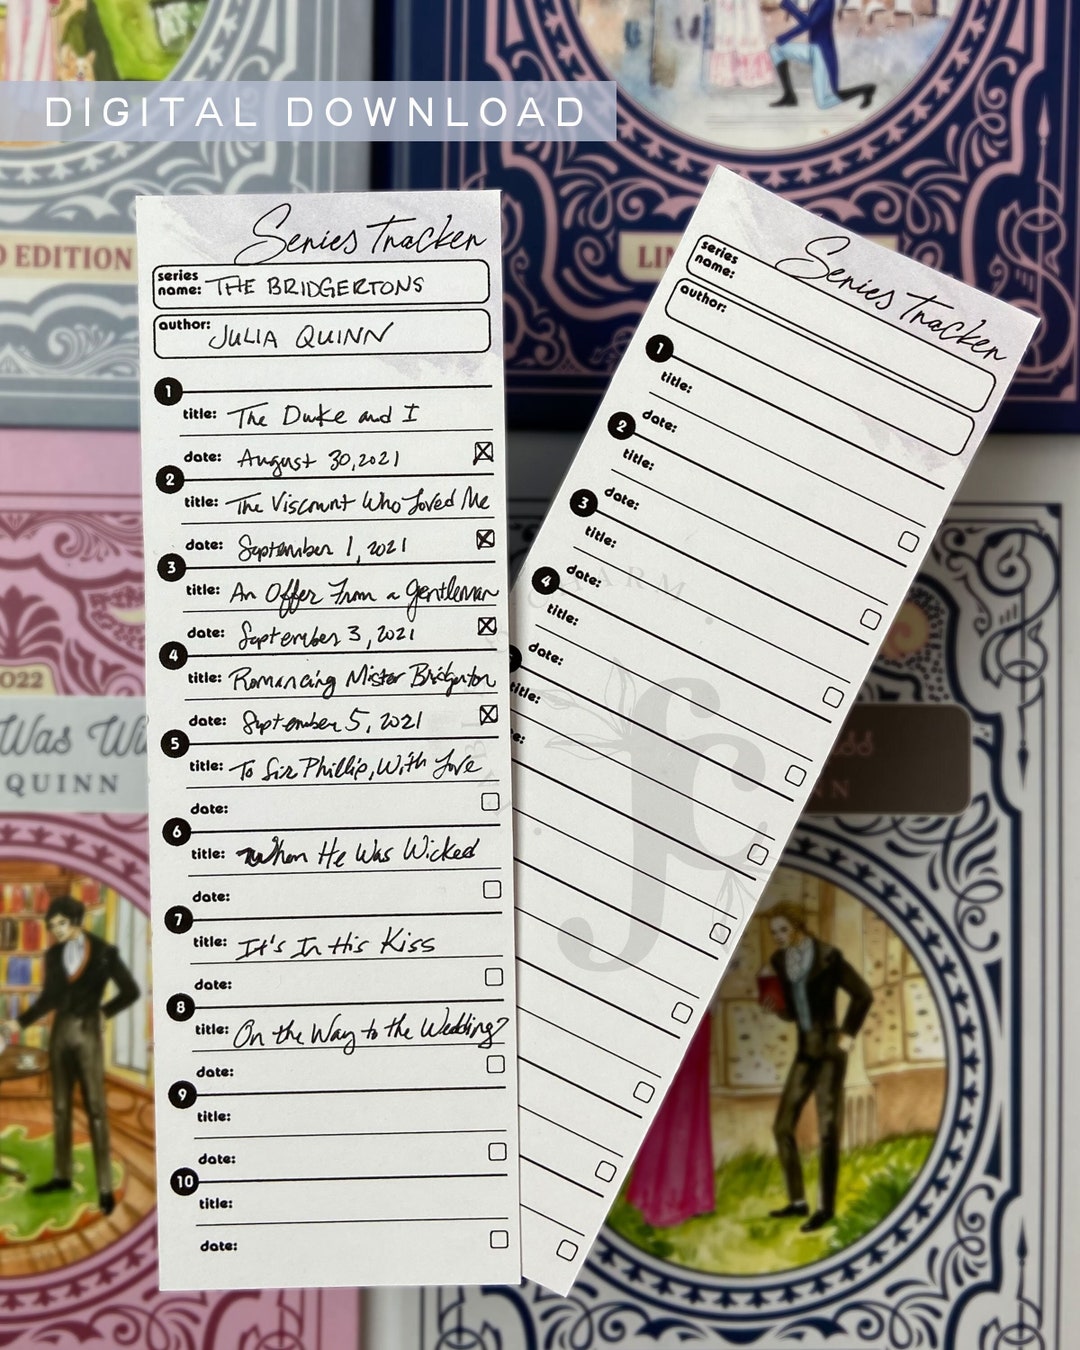 DIGITAL DOWNLOAD
EDITION
Series Tracker
series name: THE BRIDGERTONS
author: JULIA QUINN
1
title: The Duke and I
date: August 30, 2021
2
title: The Viscount Who Loved Me
date: September 1, 2021
3
title: An Offer From a Gentleman
date: September 3, 2021
4
title: Romancing Mister Bridgerton
date: September 5, 2021
5
title: To Sir Phillip, With Love
date:
6
title: When He Was Wicked
date:
7
title: It's In His Kiss
date:
8
title: On the Way to the Wedding
date:
9
title:
date:
10
title:
date:
Series Tracker
series name:
author:
1
title:
date:
2
title:
date:
3
title:
date:
4
title:
date:
title:
2022
Was
QUINN
fc